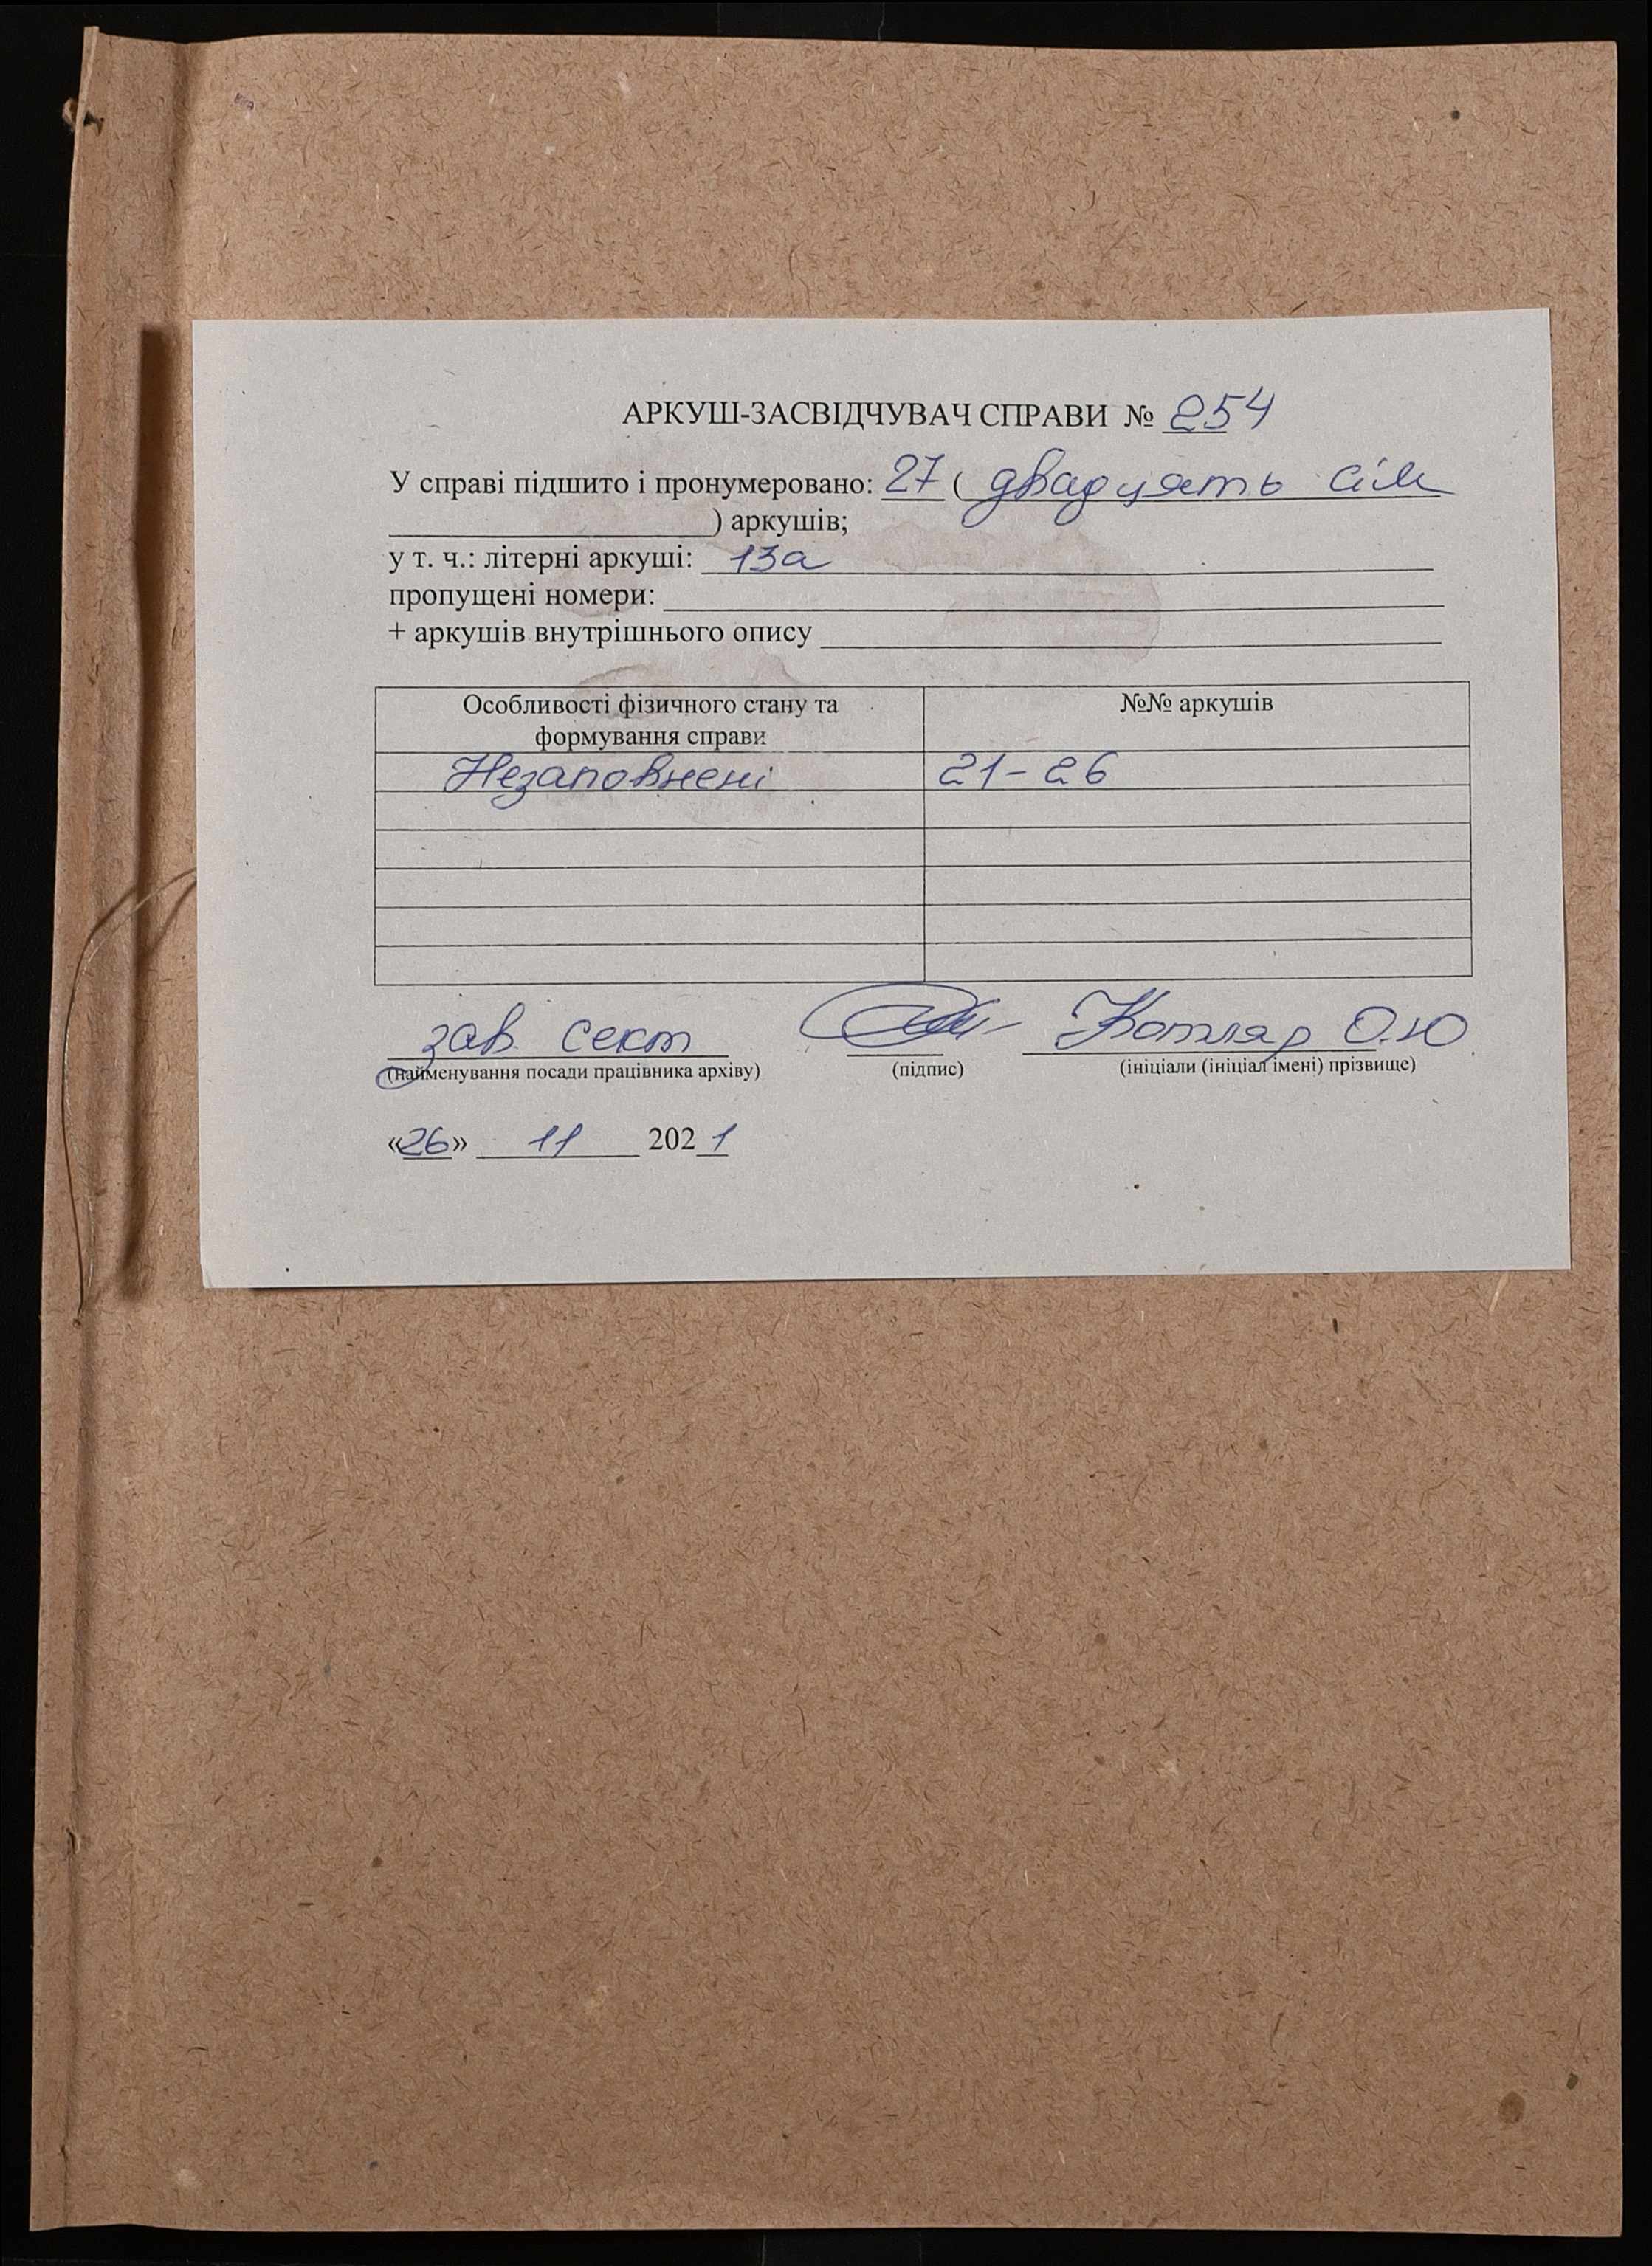 АРКУШ-ЗАСВІДЧУВАЧ СПРАВИ № 254
У справі підшито і пронумеровано: 27 ( двадцять сім
) аркушів;
у т. ч.: літерні аркуші: 13а
пропущені номери:
+ аркушів внутрішнього опису
Особливості фізичного стану та формування справи №№ аркушів
Незаповнені 21-26
зав. сект Котляр О.Ю.
(найменування посади працівника архіву) (підпис) (ініціали (ініціал імені) прізвище)
«26» 11 2021